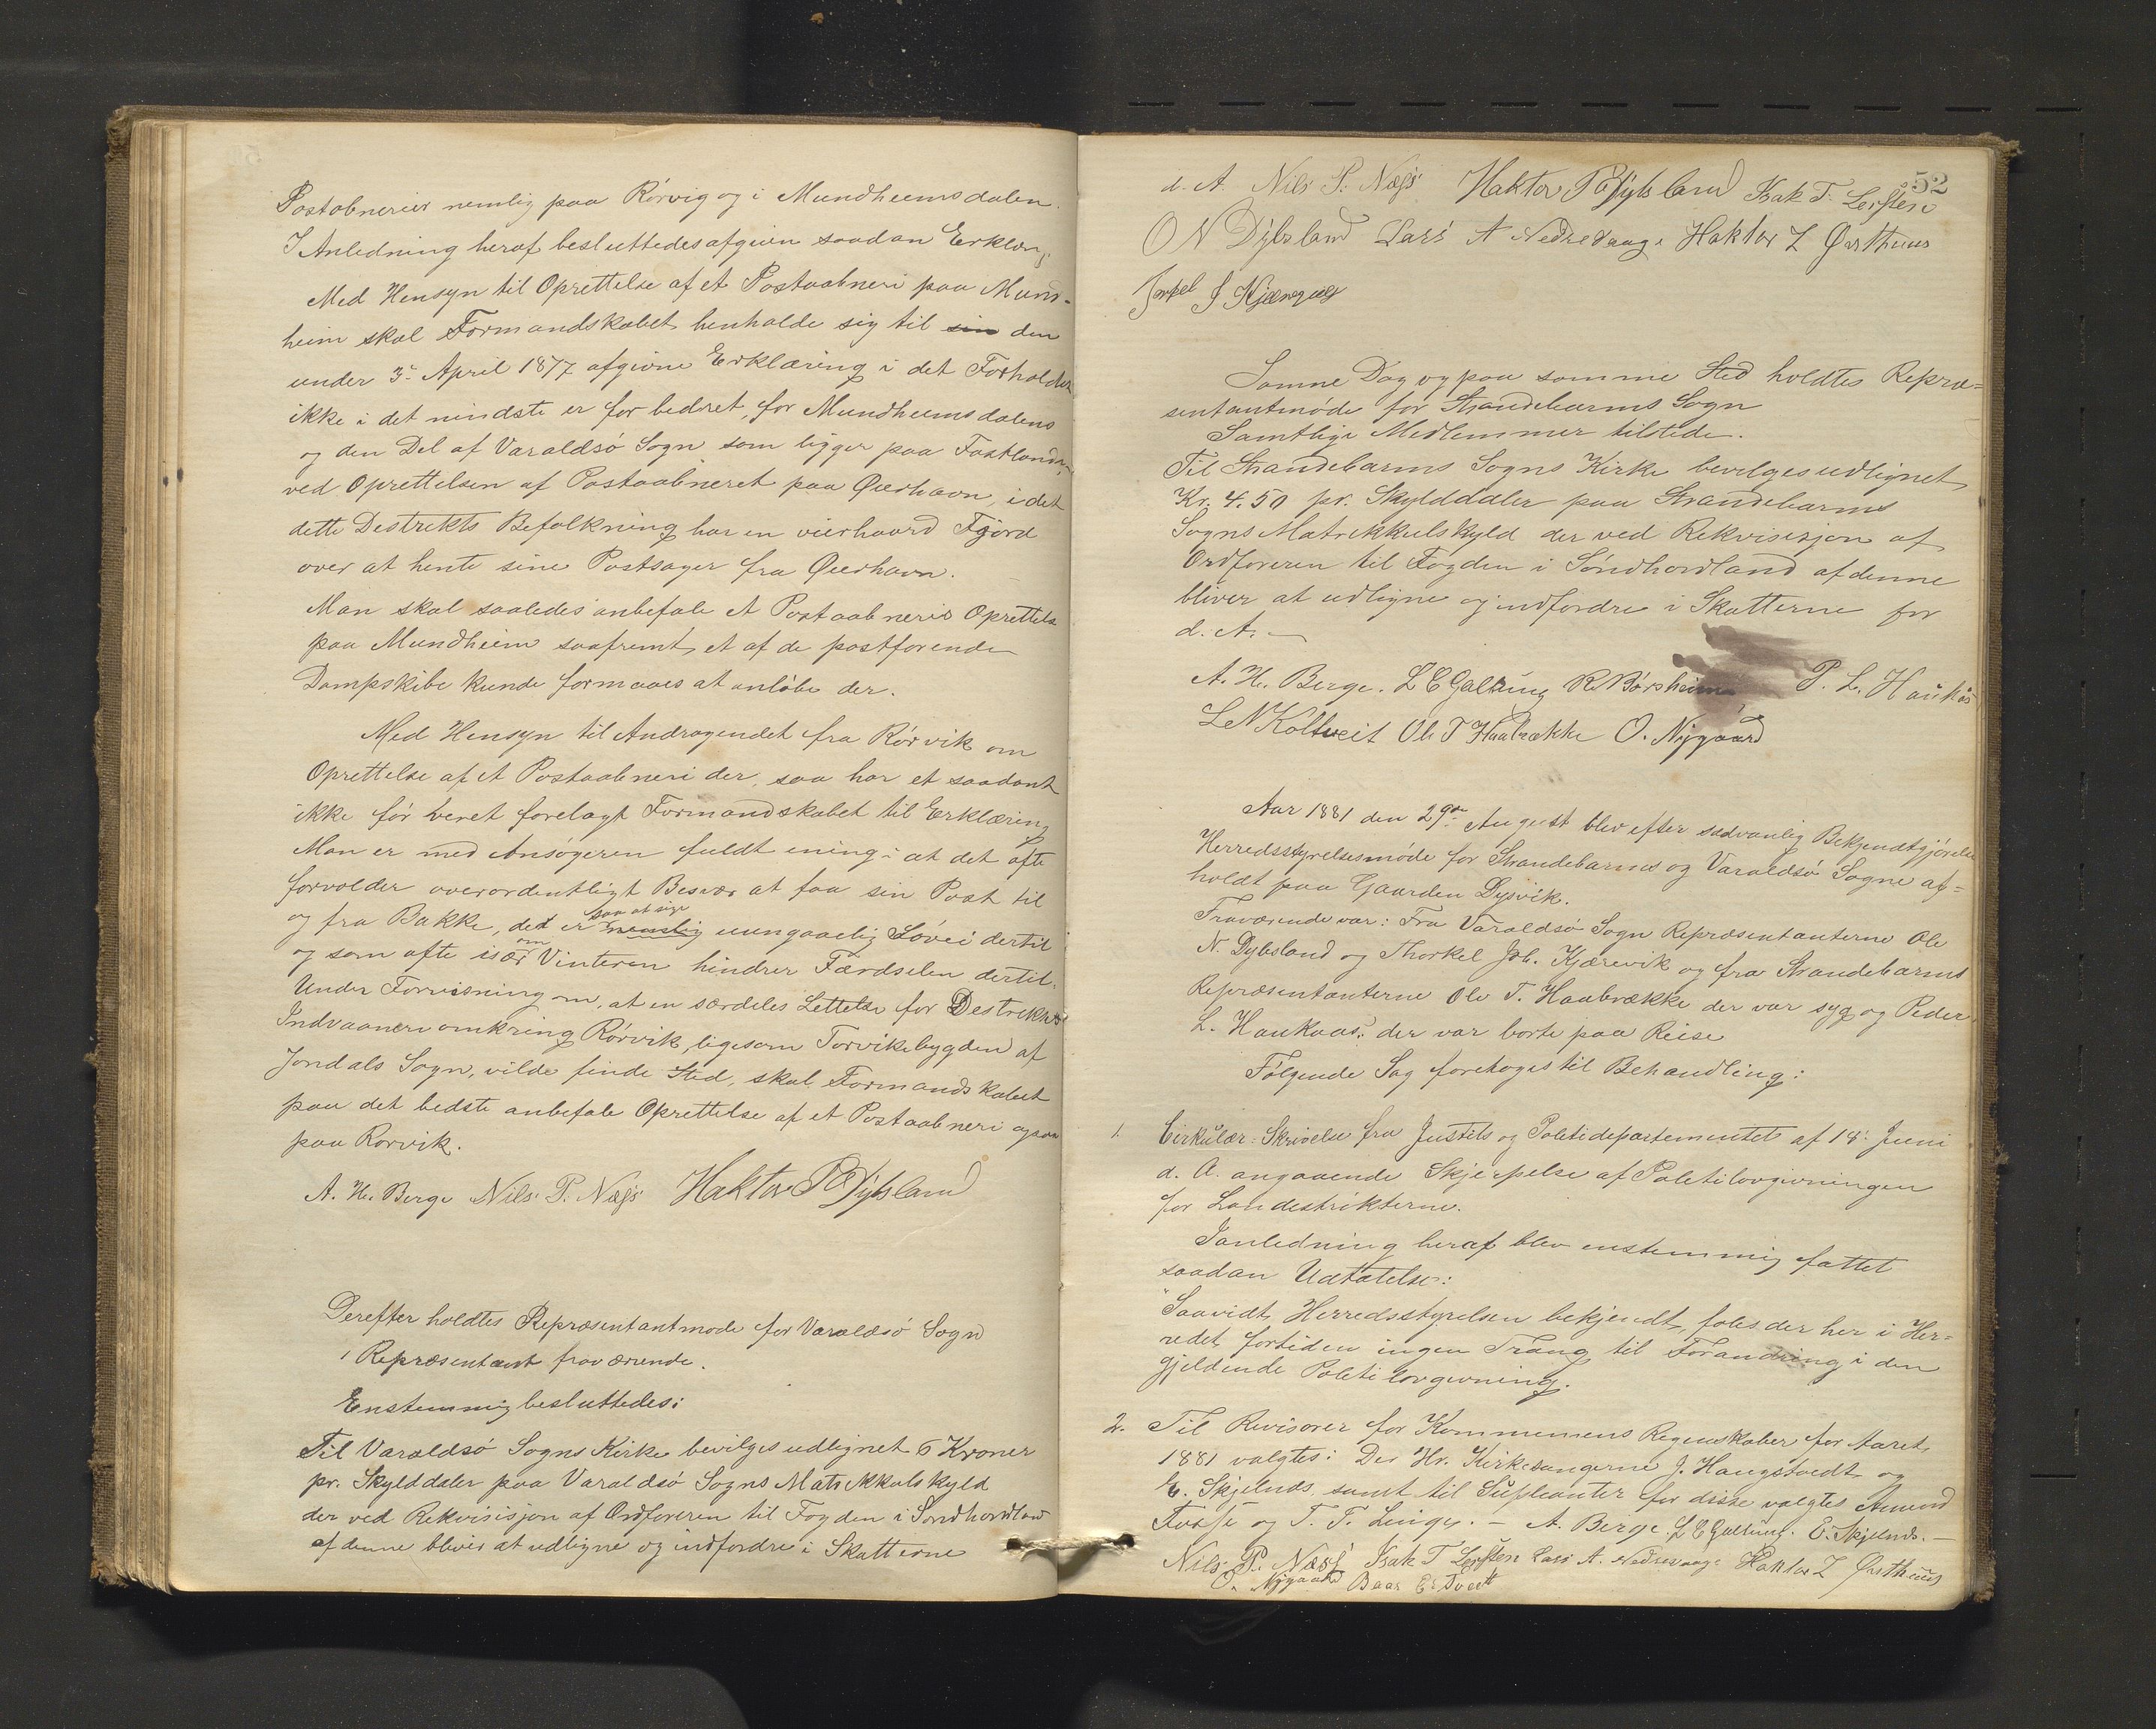 Postabnerier nemlig paa Rörvig og i Mundheimsdalen.
I Anledning heraf besluttedes afgiven saadan Erklæring:
Med Hensyn til Oprettelse af et Postaabneri paa Mund-
heim skal Formandskabet henholde sig til sin den
under 3. April 1877 afgivne Erklæring i det Forholdet
ikke i det mindste er forbedret, for Mundheimsdalens
og den Del af Varaldsö Sogn som ligger paa Fastlandet,
ved Oprettelsen af Postaabneriet paa Øierhavn, i det
dette Destrikts Befolkning har en veirhaard Fjord
over at hente sine Postsager fra Øierhavn.
Man skal saaledes anbefale et Postaabneris Oprettelse
paa Mundheim saafremt et af de postförende
Dampskibe kunde formaaes at anlöbe der.
Med Hensyn til Andragendet fra Rörvik om
Oprettelse af et Postaabneri der, saa har et saadant
ikke för veret forelagt Formandskabet til Erklæring
Man er med Ansögeren fuldt enig i at det ofte
forvolder overordentligt Besvær at faa sin Post til
og fra Bakke, det er nemlig saa at sige uungaaelig Söveì dertil
og som ofte især om Vinteren hindrer Færdselen dertil.
Under Forvisning om, at en særdeles Lettelse for Destriktets
Indvaanere omkring Rörvik, ligesom Torvikbygden af
Jondals Sogn, vilde finde Sted, skal Formandskabet
paa det bedste anbefale Oprettelse af et Postaabneri ogsaa
paa Rorvik.
A. H. Berge Nils P. Næss Haktor P Dybsland
Derefter holdtes Repræsentantmöde for Varaldsö Sogn
1 Repræsentant fraværende.
Enstemmig besluttedes:
Til Varaldsö Sogns Kirke bevilges udlignet 6 Kroner
pr. Skylddaler paa Varaldsö Sogns Matrikkulskyld
der ved Rekvisisjon af Ordföreren til Fogden i Söndhordland
af denne bliver at udligne og indfordre i Skatterne
52
d. A. Nils P. Næss Haktor P Dybsland Isak T.
O N Dybsland Lars A Nedrevaage Haktor L Østhuus
J Kjærevig
Samme Dag og paa samme Sted holdtes Repræ-
sentantmöde for Strandebarms Sogn
Samtlige Medlemmer tilstede.
Til Strandebarms Sogns Kirke bevilges udlignet
Kr. 4.50 pr. Skylddaler paa Strandebarms
Sogns Matrikkulskyld der ved Rekvisisjon af
Ordföreren til Fogden i Söndhordland af denne
bliver at udligne og indfordre i Skatterne for
d. A. —
A. H. Berge. L E Galtung R Börsheim P. L. Haukås
L N Koltveit Ole T Haabrække O. Nygaard
Aar 1881 den 29de August blev efter sædvanlig Bekjendtgjörelse
Herredsstyrelsesmöde for Strandebarms og Varaldsö Sogne af-
holdt paa Gaarden Dysvik.
Fraværende var: Fra Varaldsö Sogn Repræsentanterne Ole
N. Dybsland og Thorkel Joh. Kjærevik og fra Strandebarms
Repræsentanterne Ole T. Haabrække der var syg og Peder
L. Haukaas, der var borte paa Reise
Fölgende Sag foretoges til Behandling:
1. Cirkulær-Skrivelse fra Justits og Politidepartementet af 14. Juni
d. A. angaaende Skjerpelse af Politilovgivningen
for Landestrikterne.
Ianledning heraf blev enstemmig fattet
saadan Udtalelse:
"Saavidt Herredsstyrelsen bekjendt föles der her i Her-
redet fortiden ingen Trang til Forandring i den
gjeldende Politilovgivning.
2. Til Revisorer for Kommunens Regnskaber for Aaret
1881 valgtes: De Hr. Kirkesangerne J. Haugstvedt og
E. Skjelnds, samt til Supleanter for disse valgtes Amund
Fosse og T. T. Linge. — A. Berge. L E Galtung. E. Skjelnds. —
Nils P. Næss Isak T Lars A. Nedrevaage Haktor L Østhuus
O. Nygaard Baar E Tvedt